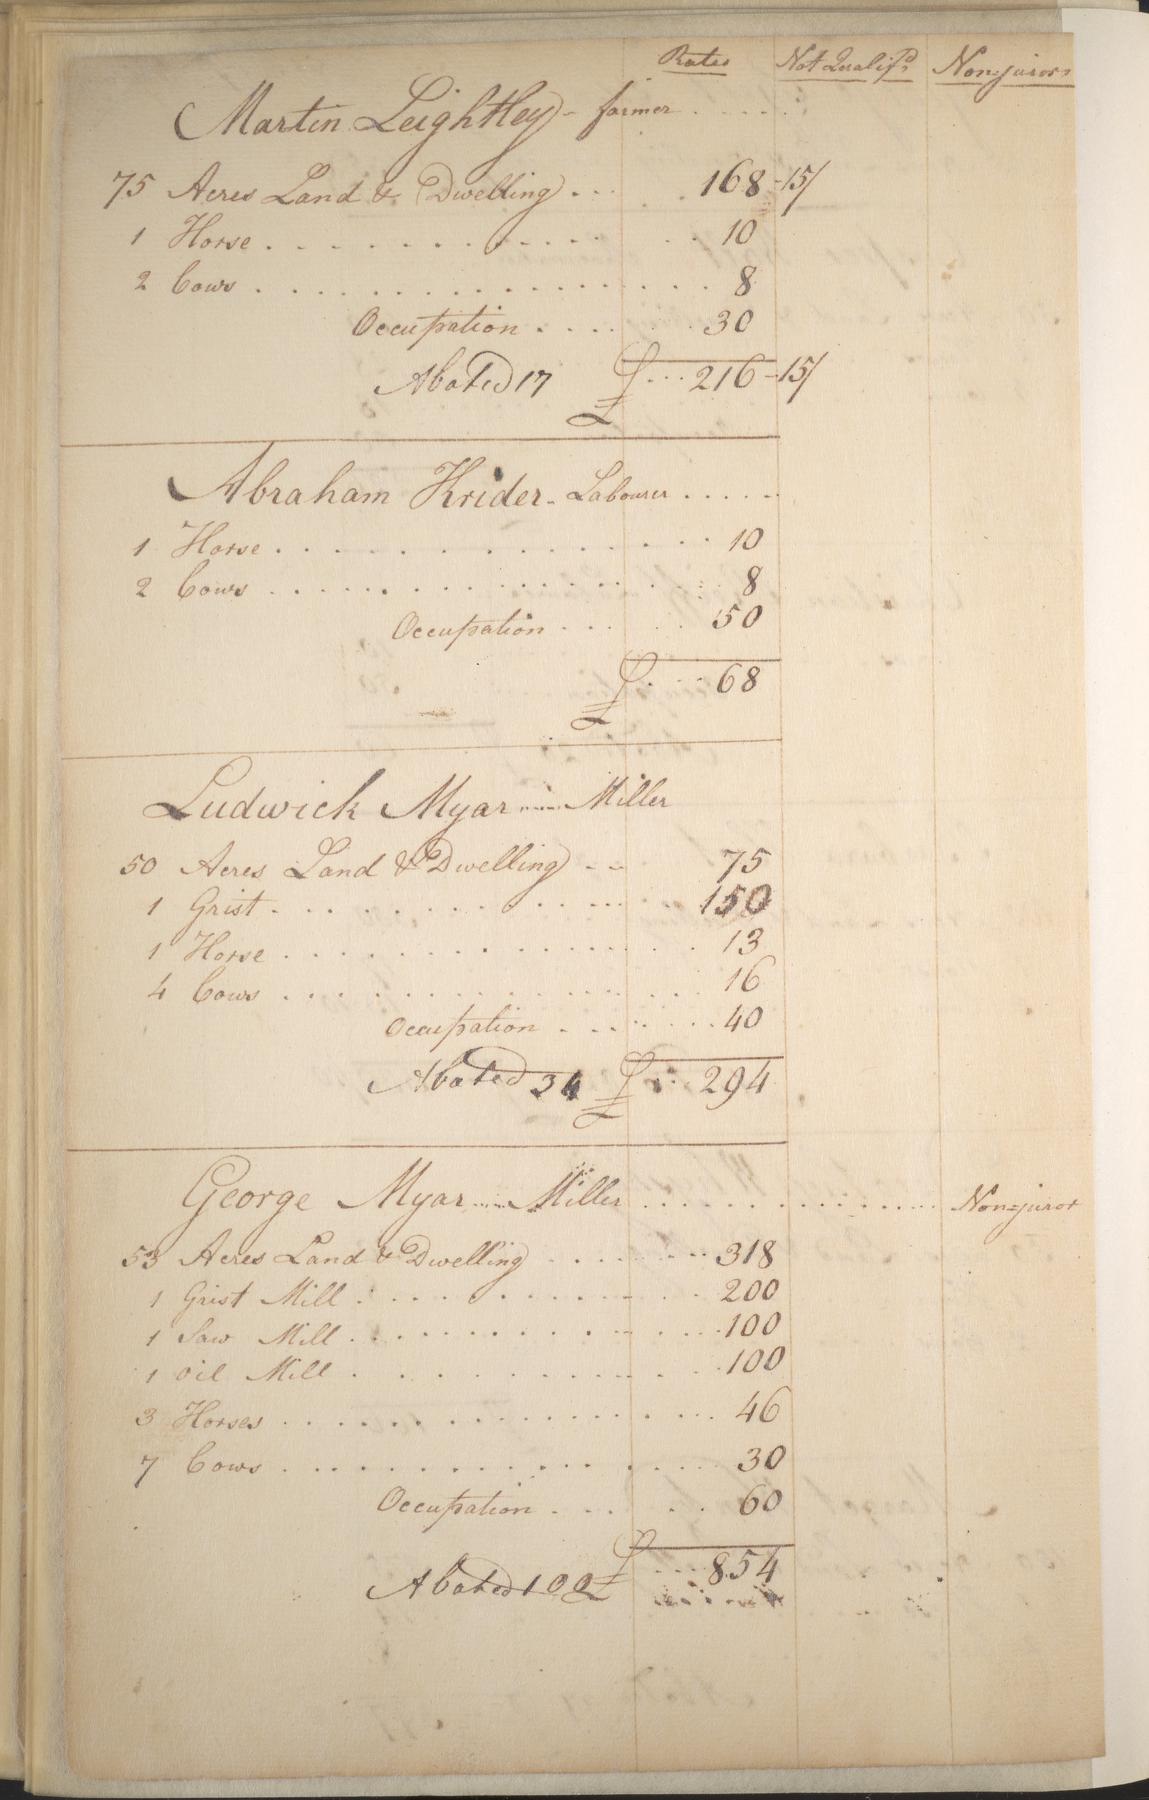 Rates Not Qualif.d Non=jurors
Martin Leightley - farmer
75 Acres Land & Dwelling 168 -15/
1 Horse 10
2 Cows 8
Occupation 30
Abated 17 £ 216 -15/
Abraham Krider - Labourer
1 Horse 10
2 Cows 8
Occupation 50
£ 68
Ludwick Myar Miller
50 Acres Land & Dwelling 75
1 Grist 150
1 Horse 13
4 Cows 16
Occupation 40
Abated 34 £ 294
George Myar Miller Non=juror
53 Acres Land & Dwelling 318
1 Grist Mill 200
1 Saw Mill 100
1 Oil Mill 100
3 Horses 46
7 Cows 30
Occupation 60
Abated 100 £ 854